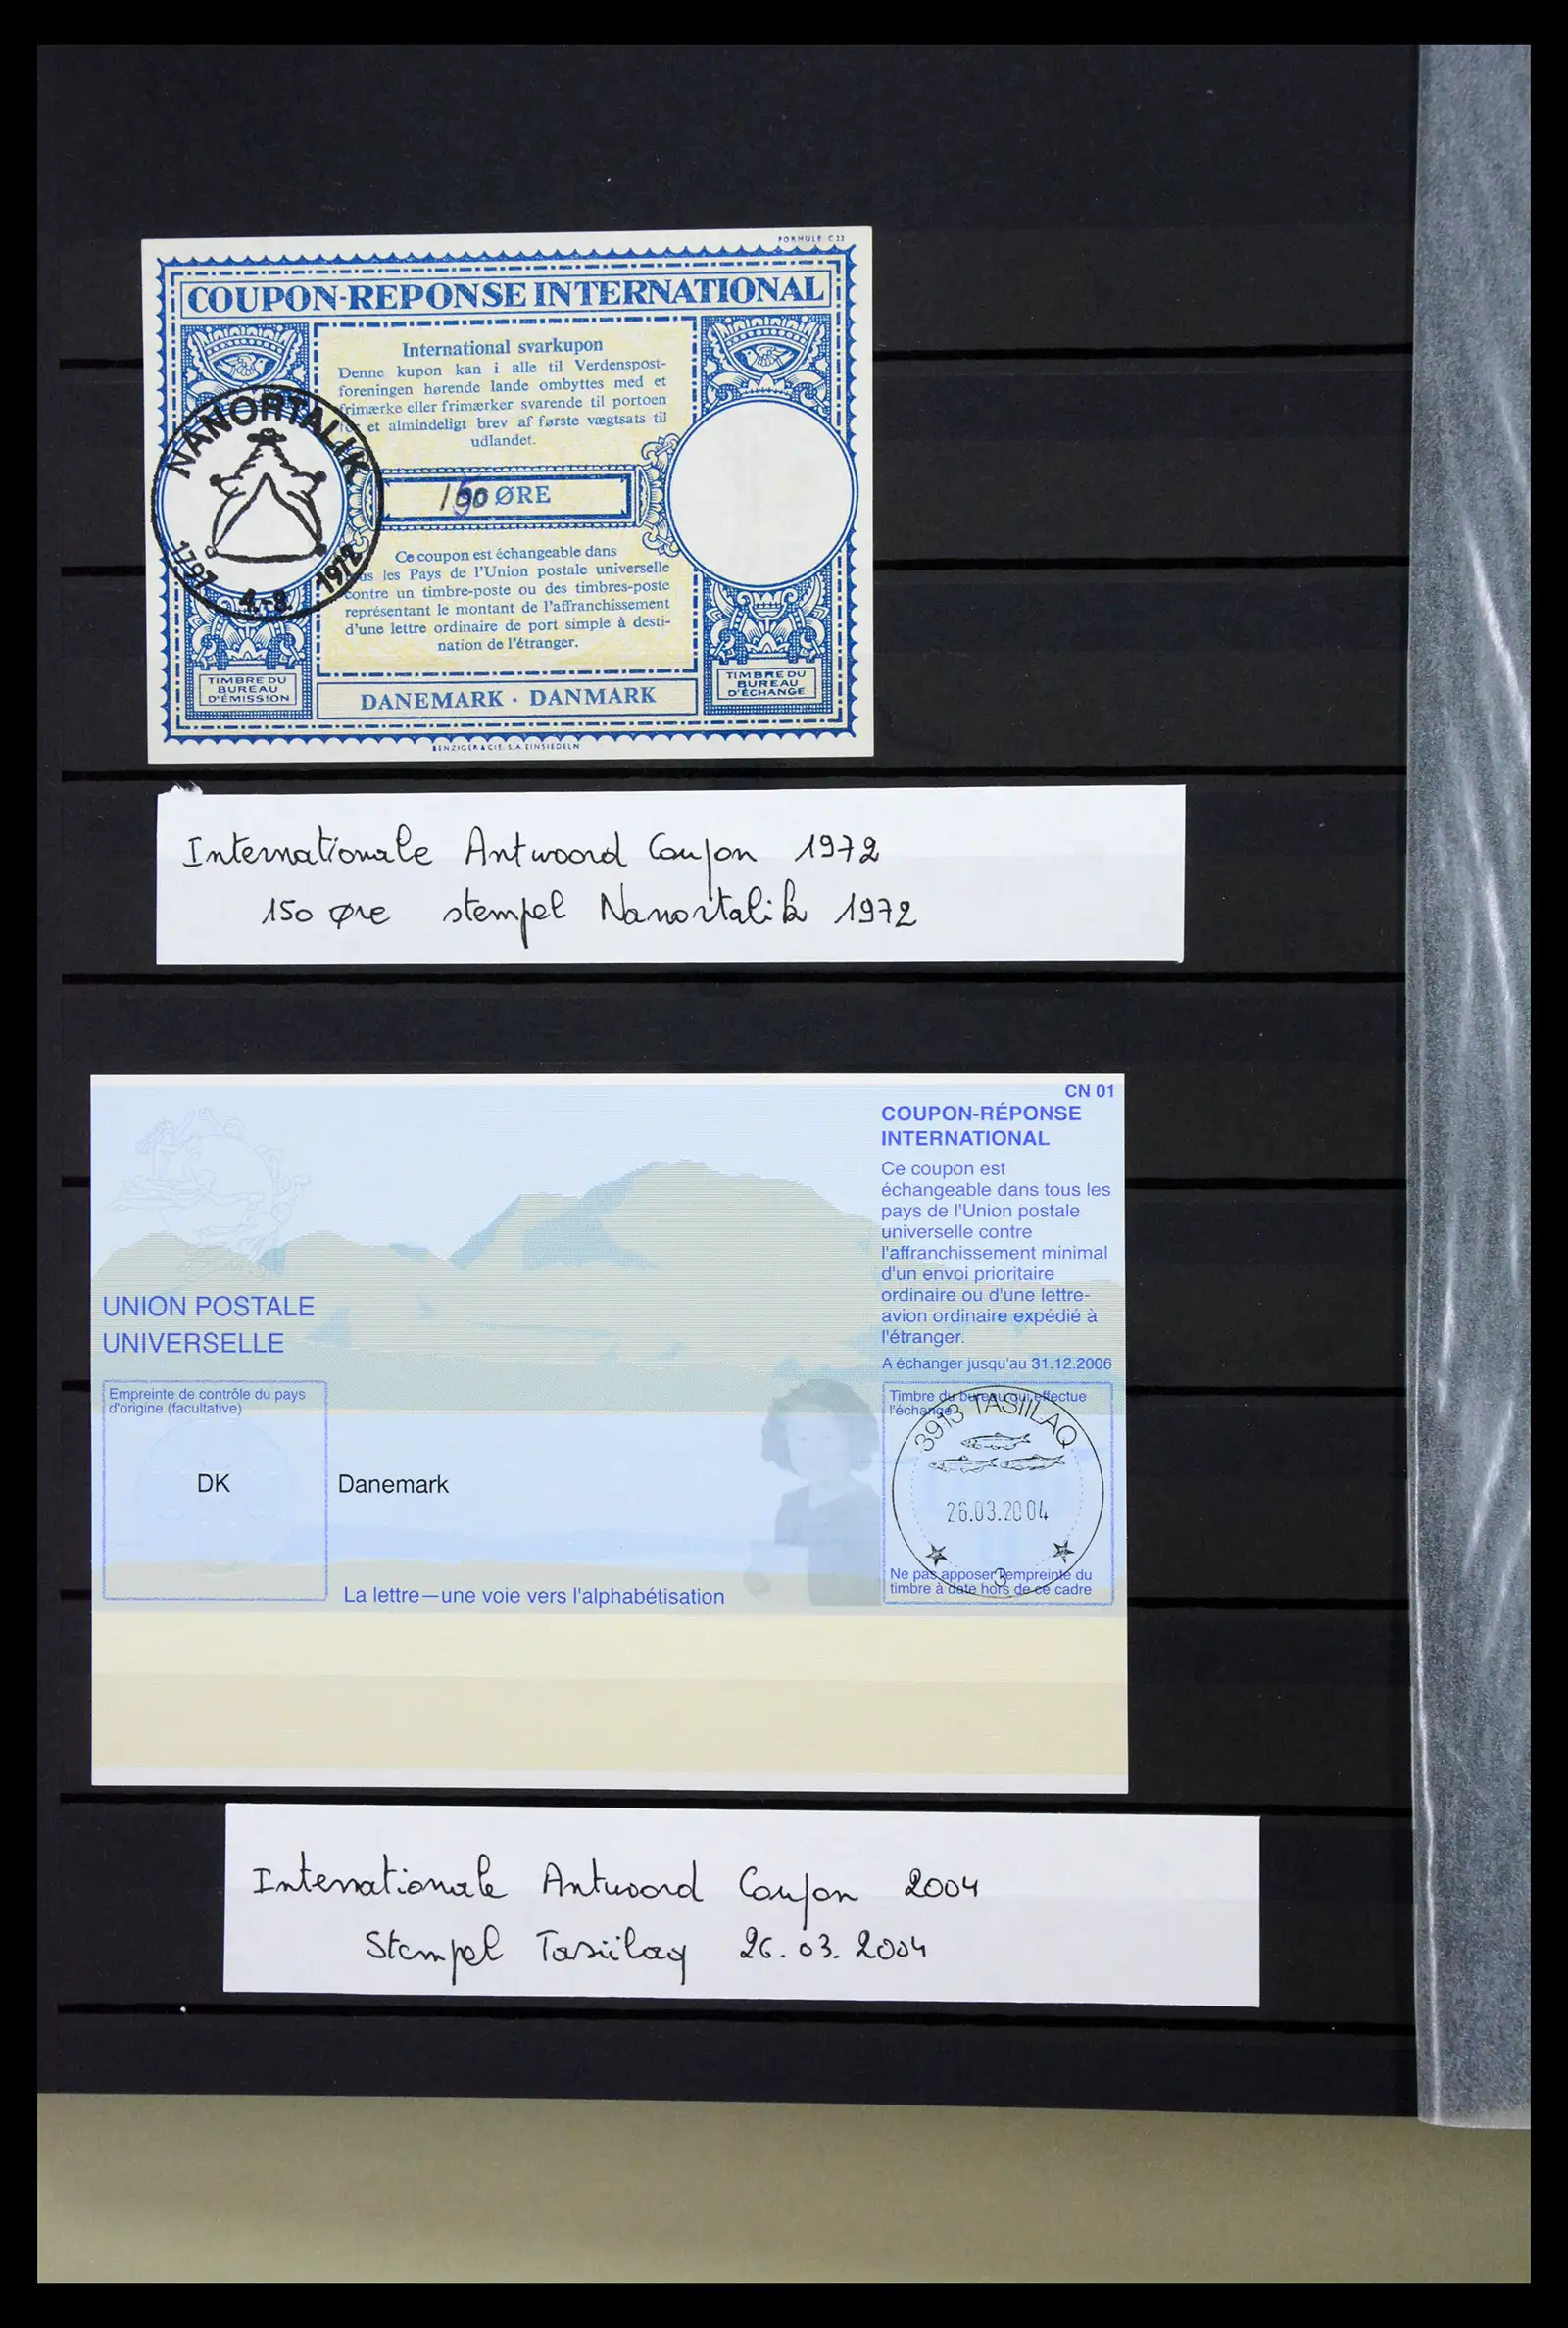 FORMULE C 22
COUPON-REPONSE INTERNATIONAL
International svarkupon
Denne kupon kan i alle til Verdenspost-
foreningen hørende lande ombyttes med et
frimærke eller frimærker svarende til portoen
for et almindeligt brev af første vægtsats til
udlandet.
NANORTALIK
1797 4.-8. 1972
ØRE
Ce coupon est échangeable dans
les Pays de l'Union postale universelle
contre un timbre-poste ou des timbres-poste
représentant le montant de l'affranchissement
d'une lettre ordinaire de port simple à desti-
nation de l'étranger.
TIMBRE DU
BUREAU
D'ÉMISSION
DANEMARK · DANMARK
TIMBRE DU
BUREAU
D'ÉCHANGE
BENZIGER & CIE. S.A. EINSIEDELN
Internationale Antwoord Coupon 1972
150 Øre stempel Nanortalik 1972
CN 01
COUPON-RÉPONSE
INTERNATIONAL
Ce coupon est
échangeable dans tous les
pays de l'Union postale
universelle contre
l'affranchissement minimal
d'un envoi prioritaire
ordinaire ou d'une lettre-
avion ordinaire expédié à
l'étranger.
A échanger jusqu'au 31.12.2006
UNION POSTALE
UNIVERSELLE
Empreinte de contrôle du pays
d'origine (facultative)
DK
Danemark
La lettre—une voie vers l'alphabétisation
Timbre du bureau qui effectue
l'échange
3913 TASIILAQ
26.03.2004
3
Ne pas apposer l'empreinte du
timbre à date hors de ce cadre
Internationale Antwoord Coupon 2004
Stempel Tasiilaq 26.03.2004